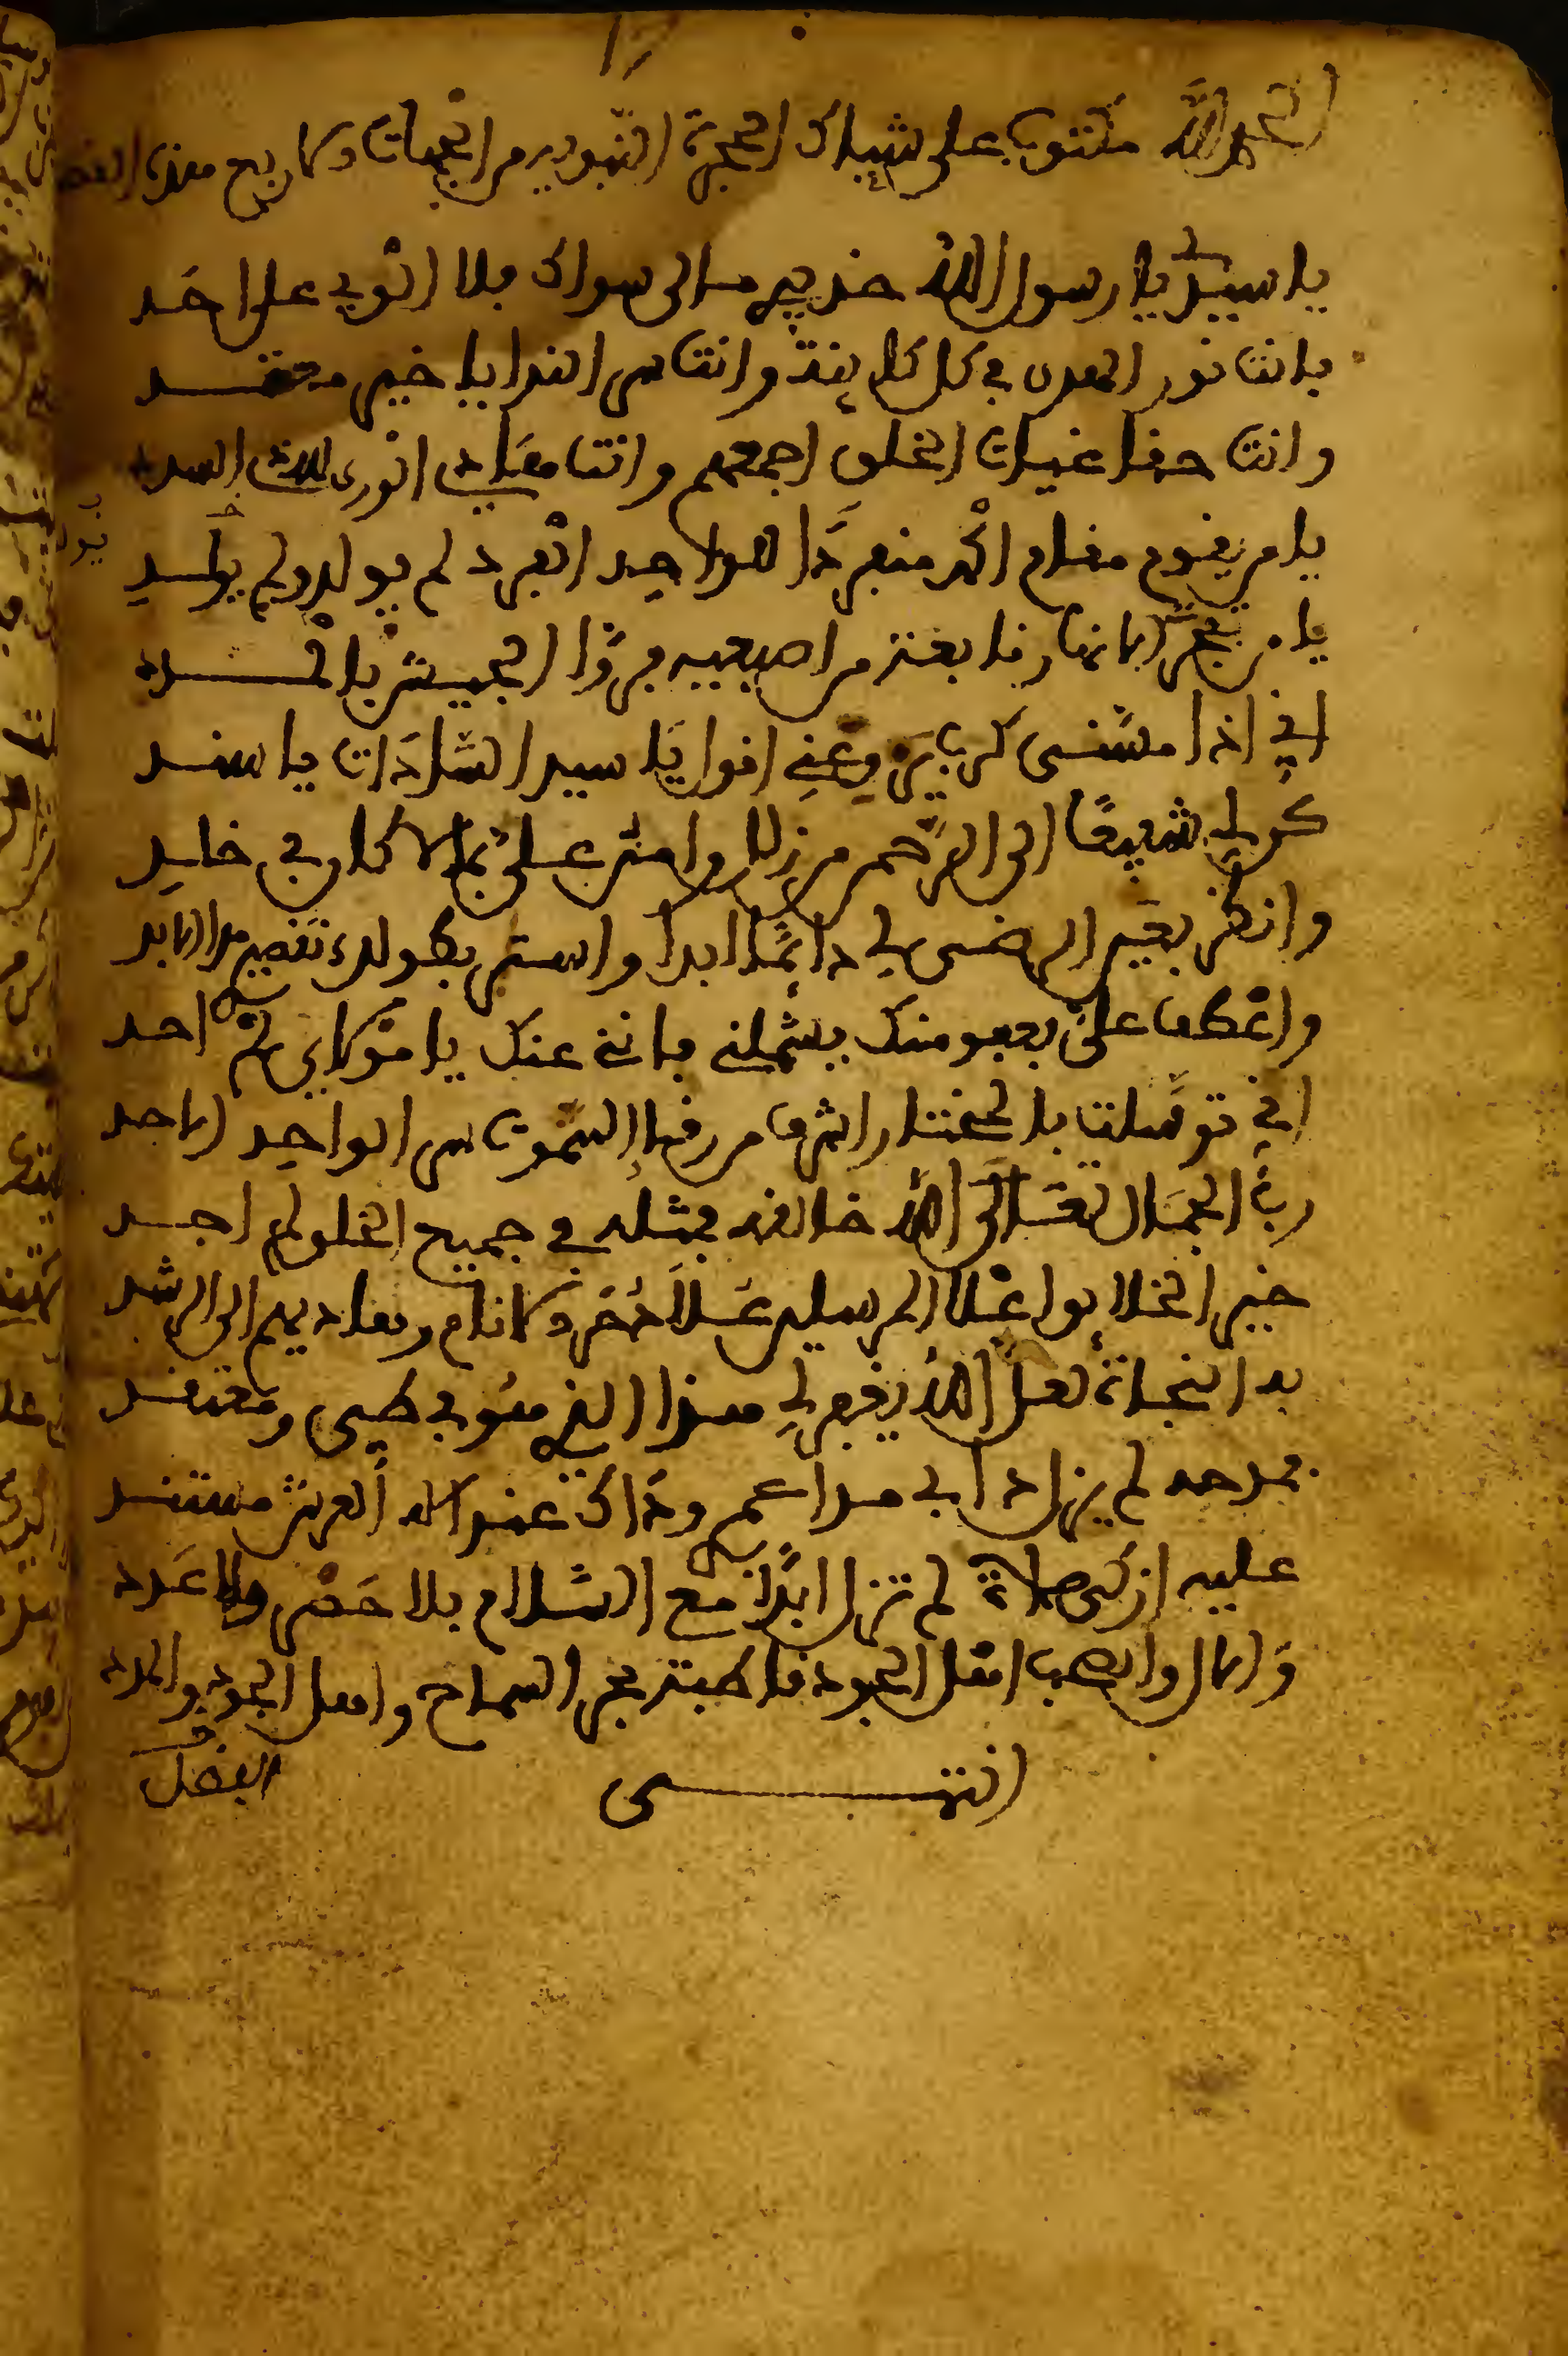 الحمد لله مكتوب على شباك الحجرة النبوية من الجهات الاربع هذه القصيدة
يا سيدي يا رسول الله خذ بيدي مالي سواك ولا الوي على احد
فانت نور الهدى في كل كاينة وانت سر الندا يا خير معتمد
وانت حقا غياث الخلق اجمعهم وانت هادي الورى لله السدد
يا من يقوم مقام الحمد منفردًا للواحد الفرد لم يولد ولم يلد
يا من تفجرت الانهار نابعة من اصبعيه فروّا الجيش بالمدد
اني اذا مسّني كرب يروعني اقول يَا سيد السّادَات يا سند
كن لي شفيعًا الى الرحمن من زللي وامنن عليّ بما لا كان في خلد
وانظر بعين الرضى لي دائمًا ابدا واستر بطولك تقصيري مدا الابد
واعْطف عليّ بعفو منك يشملني فانني عنك يا مَوْلاي لم احد
اني توسّلت بالمختار اشرف من رقا السّموات سر الواحِد الاحد
ربّ الجمَال تعَالَى اللهُ خالقه فمثله في جميع الخلق لم اجد
خير الخلائق اعْلا المرسلين عُلاً ذخر الانام وهاديهم الى الرشد
به التجأت لعلّ اللهَ يغفر لي هذا الذي هُو في ظني ومعتقد
فمدحه لم يزل دابي مدا عمر وحبه عند رب العرش مستند
عليه ازكى صلاة لم تزل ابدًا مع السّلام بلا حَصْر ولا عَدد
وَالال والصحب اهل الجود قاطبة بحر السماح واهل الجود والمدد
انتهـى
الفضل